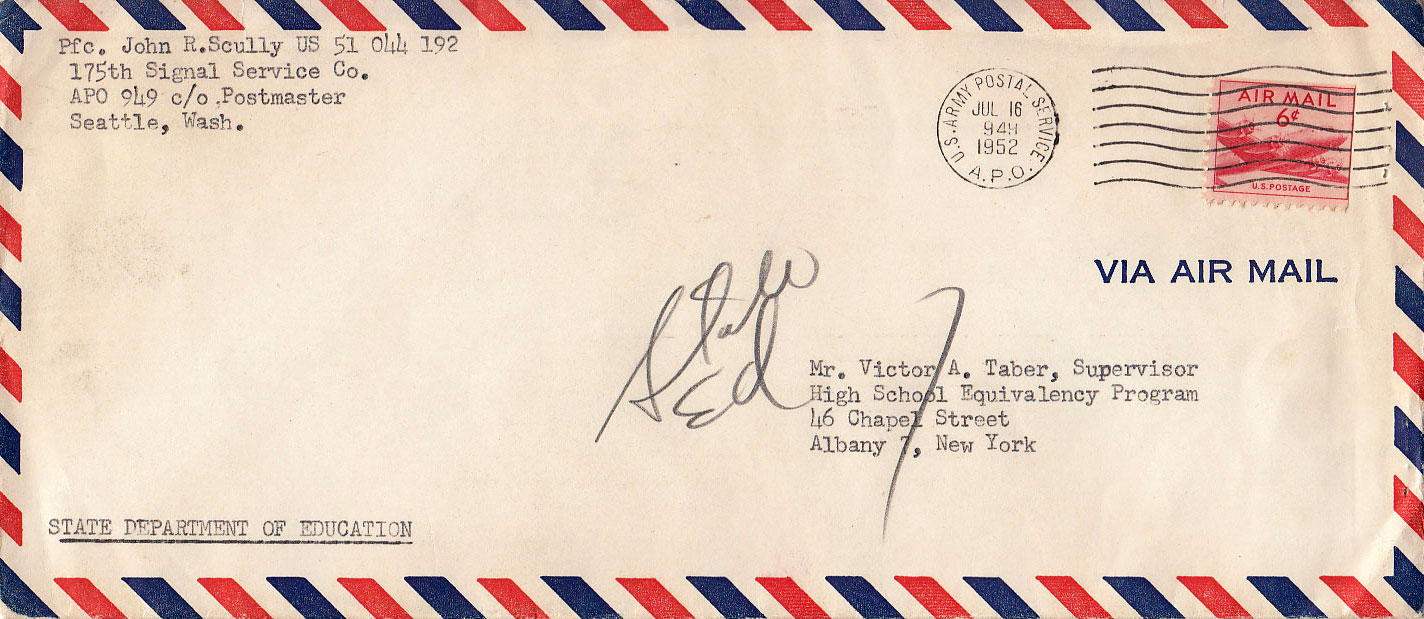 Pfc. John R.Scully US 51 044 192
175th Signal Service Co.
APO 949 c/o.Postmaster
Seattle, Wash.
U.S. ARMY POSTAL SERVICE
JUL 16
949
1952
A.P.O.
AIR MAIL
6¢
U.S. POSTAGE
VIA AIR MAIL
State
Ed
7
Mr. Victor A. Taber, Supervisor
High School Equivalency Program
46 Chapel Street
Albany 7, New York
STATE DEPARTMENT OF EDUCATION